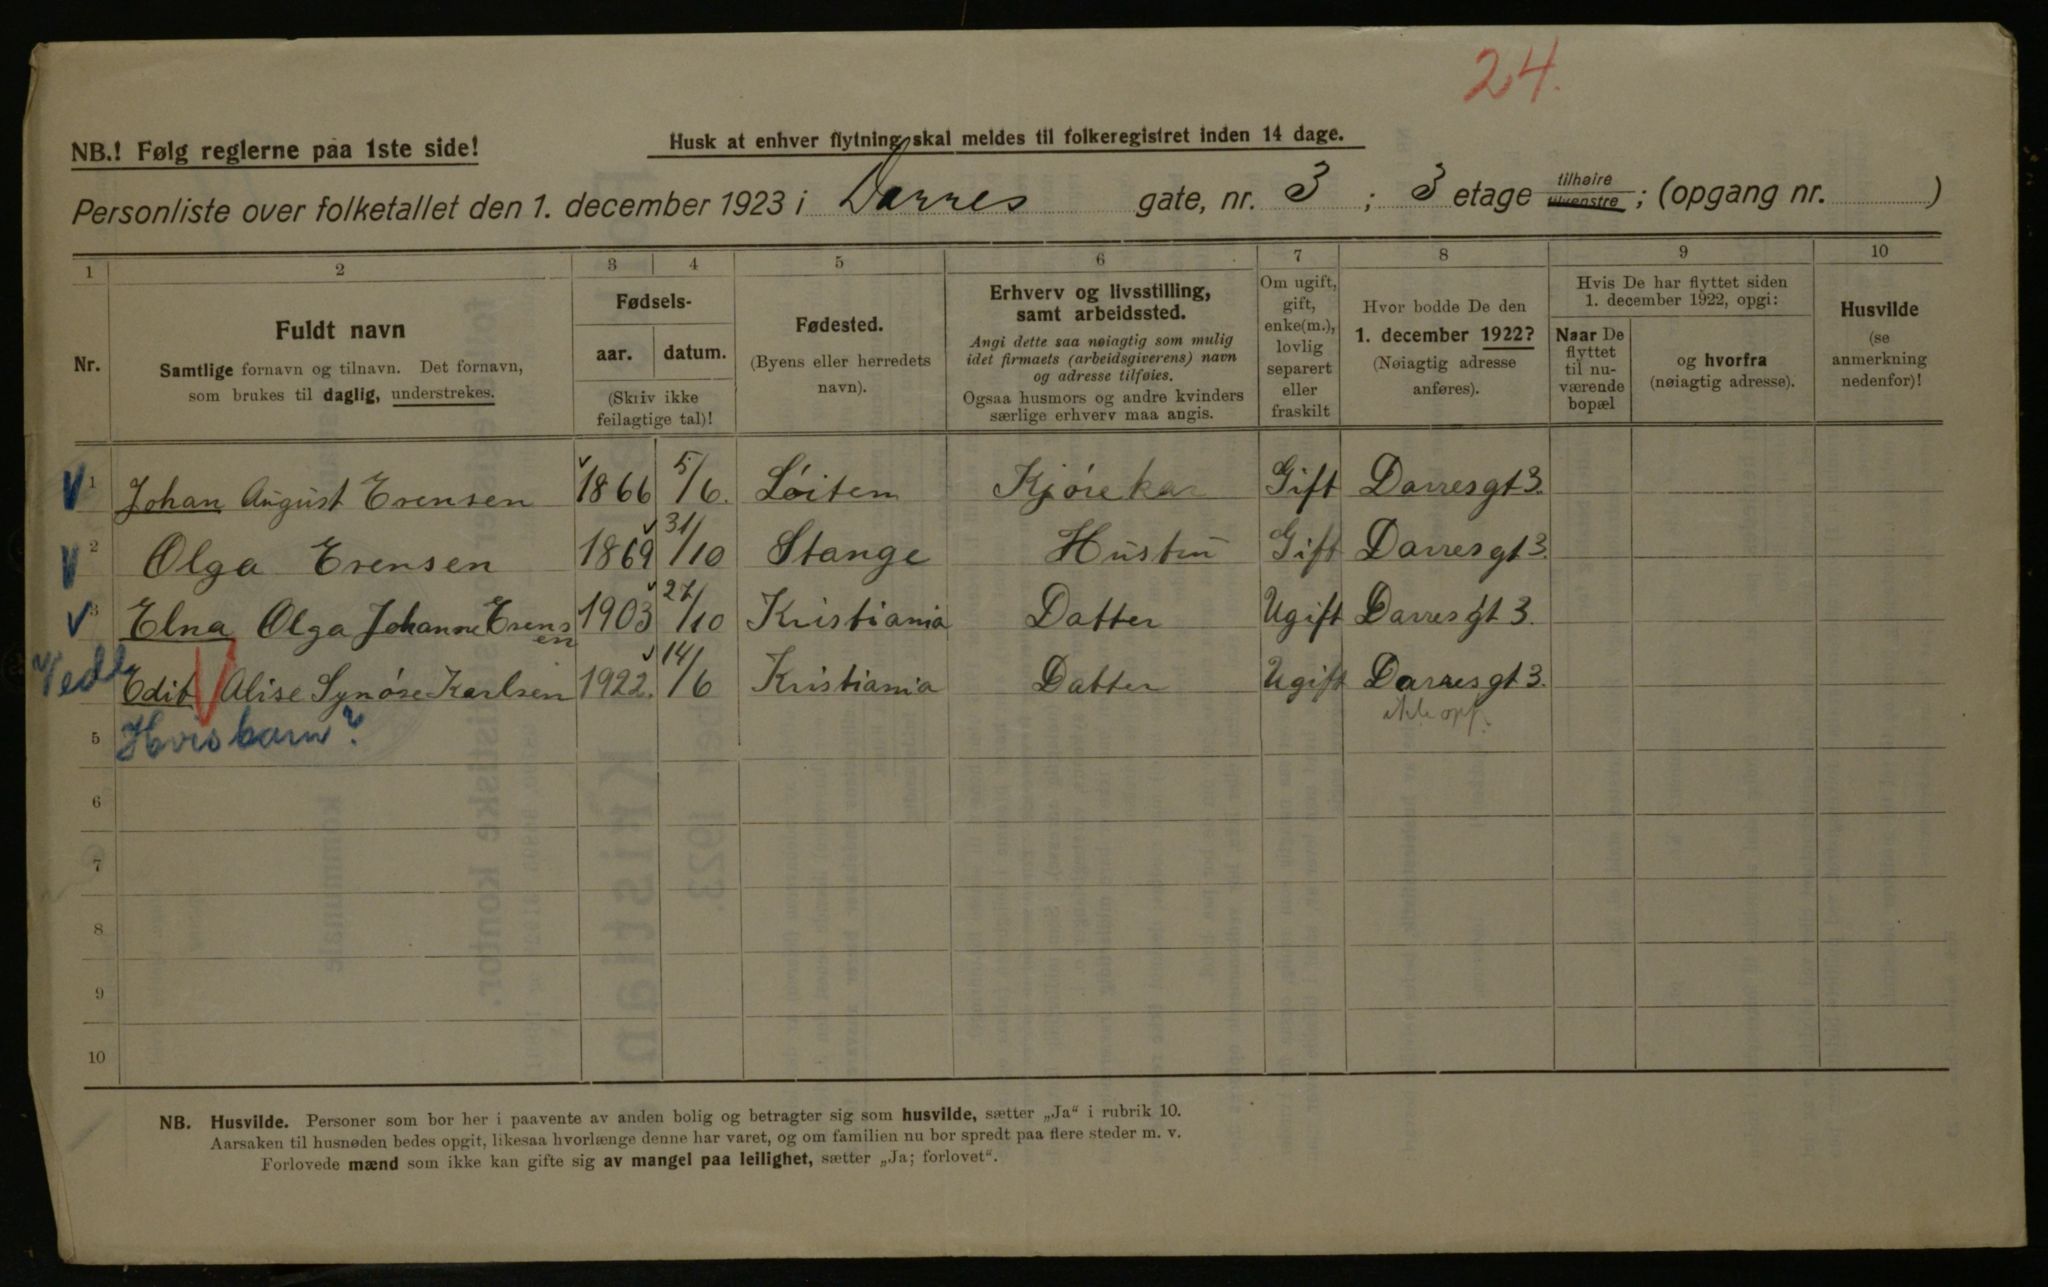 24.
NB.! Følg reglerne paa 1ste side!
Husk at enhver flytning skal meldes til folkeregistret inden 14 dage.
Personliste over folketallet den 1. december 1923 i Darres gate, nr. 3 ; 3 etage tilhøire tilvenstre ; (opgang nr. )
1 2 3 4 5 6 7 8 9 10
Nr.
Fuldt navn
Samtlige fornavn og tilnavn. Det fornavn,
som brukes til daglig, understrekes.
Fødsels-
aar. datum.
(Skriv ikke
feilagtige tal)!
Fødested.
(Byens eller herredets
navn).
Erhverv og livsstilling,
samt arbeidssted.
Angi dette saa nøiagtig som mulig
idet firmaets (arbeidsgiverens) navn
og adresse tilføies.
Ogsaa husmors og andre kvinders
særlige erhverv maa angis.
Om ugift,
gift,
enke(m.),
lovlig
separert
eller
fraskilt
Hvor bodde De den
1. december 1922?
(Nøiagtig adresse
anføres).
Hvis De har flyttet siden
1. december 1922, opgi:
Naar De
flyttet
til nu-
værende
bopæl
og hvorfra
(nøiagtig adresse).
Husvilde
(se
anmerkning
nedenfor)!
1 Johan August Erensen 1866 5/6. Løiten Kjørekar Gift Darresgt 3.
2 Olga Erensen 1869 31/10 Stange Hustru Gift Darresgt 3.
3 Elna Olga Johanne Erensen 1903 27/10 Kristiania Datter Ugift Darresgt 3.
Edit Alise Synøve Karlsen 1922. 14/6 Kristiania Datter Ugift Darresgt 3.
ikke opf.
5 Hvis barn?
6
7
8
9
10
NB. Husvilde. Personer som bor her i paavente av anden bolig og betragter sig som husvilde, sætter „Ja“ i rubrik 10.
Aarsaken til husnøden bedes opgit, likesaa hvorlænge denne har varet, og om familien nu bor spredt paa flere steder m. v.
Forlovede mænd som ikke kan gifte sig av mangel paa leilighet, sætter „Ja; forlovet“.